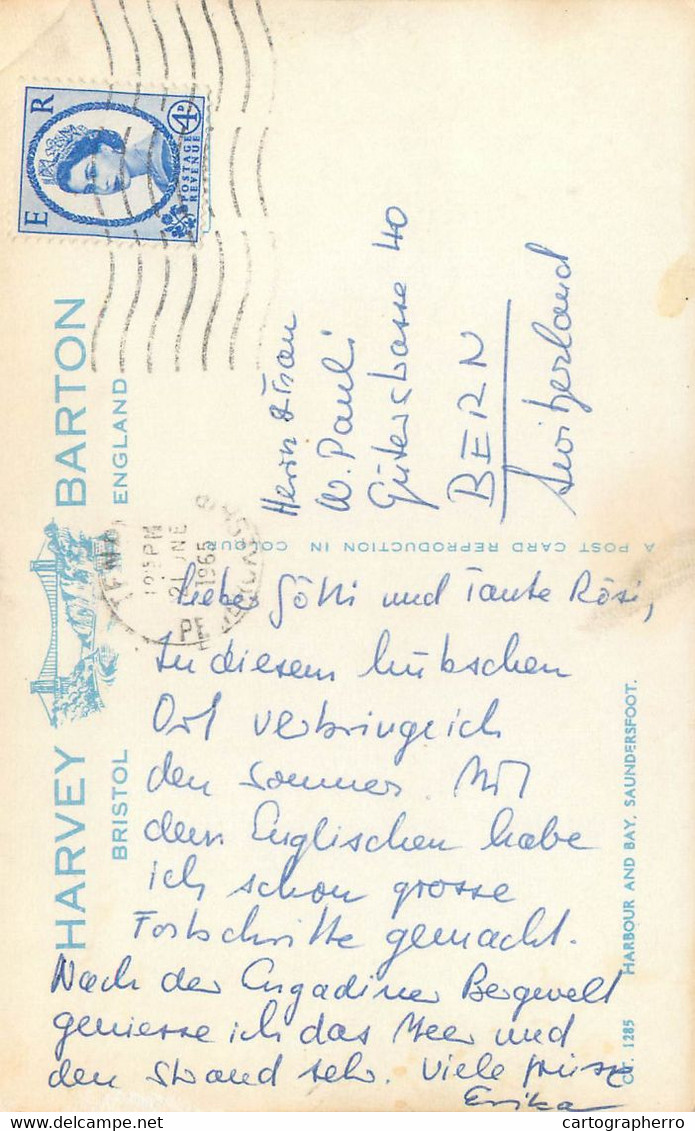 E R
4D
POSTAGE
REVENUE
HARVEY BARTON
BRISTOL ENGLAND
PM
21 JNE
1965
PE
Herrn & Frau
W. Pauli
Güterstrasse 40
BERN
Switzerland
A POST CARD REPRODUCTION IN COLOUR
Lieber Götti und Tante Rösi,
In diesem hübschen
Ort verbringe ich
den Sommer. Mit
dem Englischen habe
ich schon grosse
Fortschritte gemacht.
Nach der Engadiner Bergwelt
geniesse ich das Meer und
den Strand sehr. Viele Grüsse
Erika
CT. 1285 HARBOUR AND BAY, SAUNDERSFOOT.
cartographerro
www.delcampe.net